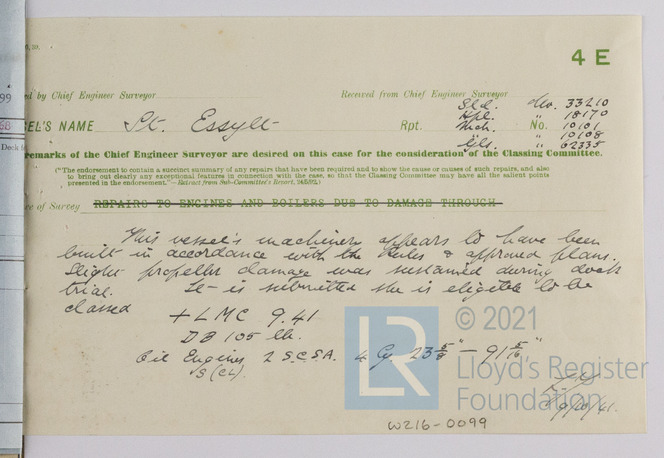 4 E
99
ed by Chief Engineer Surveyor
Received from Chief Engineer Surveyor
SEL'S NAME St. Essylt Rpt. Sld. No. 33210
Hpl. " 18170
Mch. 10101
" 10108
Gls. " 62335
remarks of the Chief Engineer Surveyor are desired on this case for the consideration of the Classing Committee.
("The endorsement to contain a succinct summary of any repairs that have been required and to show the cause or causes of such repairs, and also
to bring out clearly any exceptional features in connection with the case, so that the Classing Committee may have all the salient points
presented in the endorsement."—Extract from Sub-Committee's Report,
re of Survey REPAIRS TO ENGINES AND BOILERS DUE TO DAMAGE THROUGH
This vessel's machinery appears to have been
built in accordance with the Rules & approved plans.
Slight propeller damage was sustained during dock
trial. It is submitted she is eligible to be
classed + LMC 9.41
DB 105 lb.
Oil Engines 2 S.C.S.A. 4 Cy 23 5/8" — 91 5/16"
S (CL).
9/10/41.
W216-0099
© 2021
LR
Lloyd's Register
Foundation